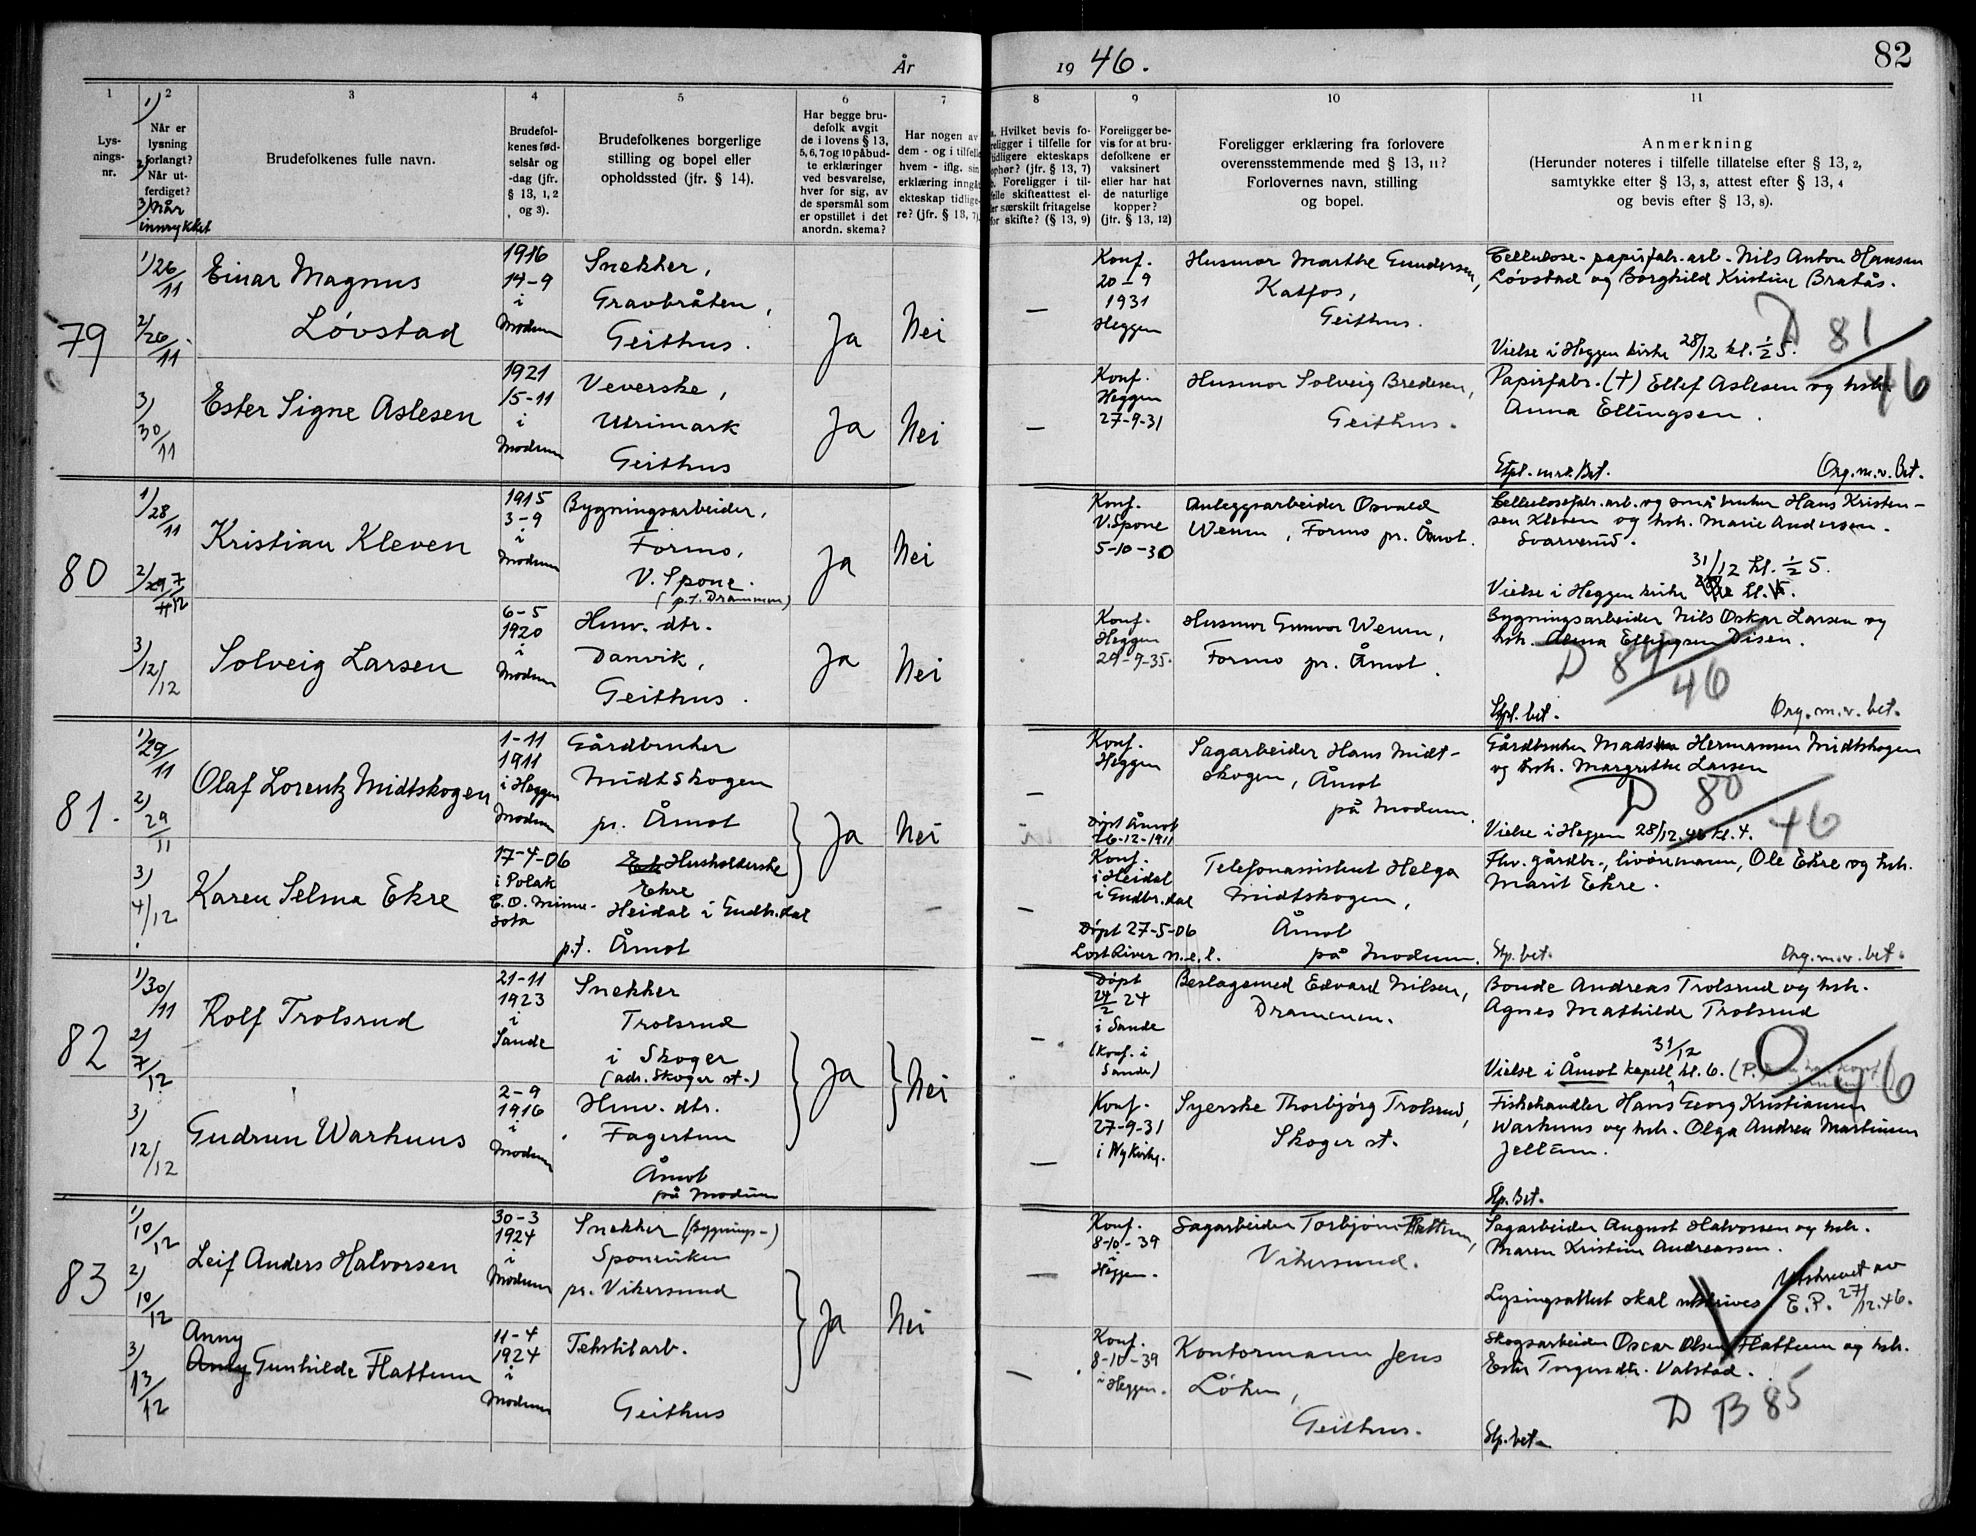 År 1946.
82
1
Lys-
nings-
nr.
1) 2
Når er
lysning
forlangt?
2) Når ut-
ferdiget?
3) Når
innrykket
3
Brudefolkenes fulle navn.
4
Brudefol-
kenes fød-
selsår og
-dag (jfr.
§ 13, 1, 2
og 3).
5
Brudefolkenes borgerlige
stilling og bopel eller
opholdssted (jfr. § 14).
6
Har begge bru-
defolk avgit
de i lovens § 13,
5, 6, 7 og 10 påbud-
te erklæringer
ved besvarelse,
hver for sig, av
de spørsmål som
er opstillet i det
anordn. skema?
7
Har nogen av
dem - og i tilfelle
hvem - iflg. sin
erklæring inngått
ekteskap tidlige-
re? (jfr. § 13, 7)
8
a. Hvilket bevis fo-
religger i tilfelle for
tidligere ekteskaps
ophør? (jfr. § 13, 7)
b. Foreligger i til-
felle skifteattest el-
ler særskilt fritagelse
for skifte? (§ 13, 9)
9
Foreligger be-
vis for at bru-
defolkene er
vaksinert
eller har hat
de naturlige
kopper?
(jfr. § 13, 12)
10
Foreligger erklæring fra forlovere
overensstemmende med § 13, 11?
Forlovernes navn, stilling
og bopel.
11
Anmerkning
(Herunder noteres i tilfelle tillatelse efter § 13, 2,
samtykke efter § 13, 3, attest efter § 13, 4
og bevis efter § 13, 8).
79
1) 26/11
2) 26/11
3) 30/11
Einar Magnus
Løvstad
1916
14-9
i
Modum
Snekker,
Gravbråten,
Geithus.
Ja
Nei
—
Konf.
20-9
1931
Heggen
Husmor Marthe Gundersen,
Katfos,
Geithus.
Cellulose- papirfabr.arb. Nils Anton Hansen
Løvstad og Borghild Kristine Bratås.
Vielse i Heggen kirke 28/12 kl. ½5.
D 81/46
Ester Signe Aslesen
1921
15-11
i
Modum
Veverske,
Utrimark
Geithus
Ja
Nei
—
Konf.
Heggen
27-9-31
Husmor Solveig Bredesen,
Geithus.
Papirfabr. (+) Ellef Aslesen og hstr.
Anna Ellingsen.
Org.m.v. bet.
80
1) 28/11
2) 7/12
3) 12/12
Kristian Kleven
1915
3-9
i
Modum
Bygningsarbeider,
Formo,
V. Spone.
(p.t. Drammen)
Ja
Nei
Konf.
V.Spone
5-10-30
Anleggsarbeider Osvald
Werum, Formo pr. Åmot.
Cellulosefabr.arb. og småbruker Hans Kristen-
sen Kleven og hstr. Marie Andersen
Svarverud.
31/12 kl. ½5.
Vielse i Heggen kirke
Solveig Larsen
6-5
1920
i
Modum
Huv. dtr.
Danvik,
Geithus.
Ja
Nei
Konf.
Heggen
29-9-35.
Husmor Gunvor Werum,
Formo pr. Åmot.
Bygningsarbeider Nils Oskar Larsen og
hstr. Anna Ellingsen Disen.
D 84/46
Stpl. bet.
Org.m.v. bet.
81.
1) 29/11
2) 29/11
3) 4/12
Olaf Lorentz Midtskogen
1-11
1911
i Heggen
Modum
Gårdbruker
Midtskogen
pr. Åmot
Ja
Nei
—
Konf.
Heggen
Døpt Åmot
26-12-1911
Sagarbeider Hans Midt-
skogen, Åmot
på Modum.
Gårdbruker Mads Hermansen Midtskogen
og hstr. Margrethe Larsen
D 80/46
Vielse i Heggen 28/12.46 kl. 4.
Karen Selma Ekre
17-4-06
i Polak
C.O. Minne-
sota
Husholderske
Ekre
Heidal i Gudbr.dal
p.t. Åmot
—
Konf.
i Heidal
i Gudbr.dal
Døpt 27-5-06
Lost River n.e.l.
Telefonassistent Helga
Midtskogen,
Åmot
på Modum.
Fhv. gårdbr., livøremann, Ole Ekre og hstr.
Marit Ekre.
Stp. bet.
Org.m.v. bet.
82
1) 30/11
2) 7/12
3) 12/12
Rolf Trolsrud
21-11
1923
i
Sande
Snekker
Trolsrud
i Skoger
(adr. Skoger st.)
Ja
Nei
—
Døpt
24/2 24
i Sande
(Konf. i
Sande)
Beslagsmed Edvard Nilsen,
Drammen.
Bonde Andreas Trolsrud og hstr.
Agnes Mathilde Trolsrud
31/12
Vielse i Åmot kapell kl. 6.
Gudrun Warhuus
2-9
1916
i
Modum
Huv. dtr.
Fagertun
Åmot
på Modum
—
Konf.
27-9-31
i Nykirke.
Syerske Thorbjørg Trolsrud,
Skoger st.
Fiskehandler Hans Georg Kristiansen
Warhuus og hstr. Olga Andrea Martinsen
Jellum.
Stp. bet.
83
1) 10/12
2) 10/12
3) 13/12
Leif Anders Halvorsen
30-3
1924
i
Modum
Snekker (Bygnings-)
Sponeviken
pr. Vikersund
Ja
Nei
—
Konf.
8-10-39
i
Heggen.
Sagarbeider Torbjørn Flattum,
Vikersund.
Sagarbeider August Halvorsen og hstr.
Maren Kristine Andreassen.
Lysingsattest skal utskrives. Utskrevet av
E.P. 27/12.46.
Anny
Gunhilde Flattum
11-4
1924
i
Modum
Tekstilarb.
Geithus
—
Konf.
8-10-39
i Heggen.
Kontormann Jens
Løken,
Geithus.
Skogsarbeider Oscar Olsen Flattum og hstr.
Ester Torgersdtr. Valstad.
D B 85
Stp. bet.